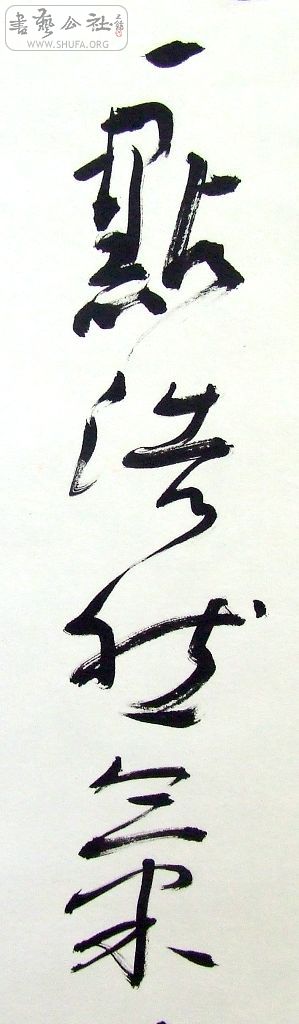 書藝公社
WWW.SHUFA.ORG
一點浩然氣